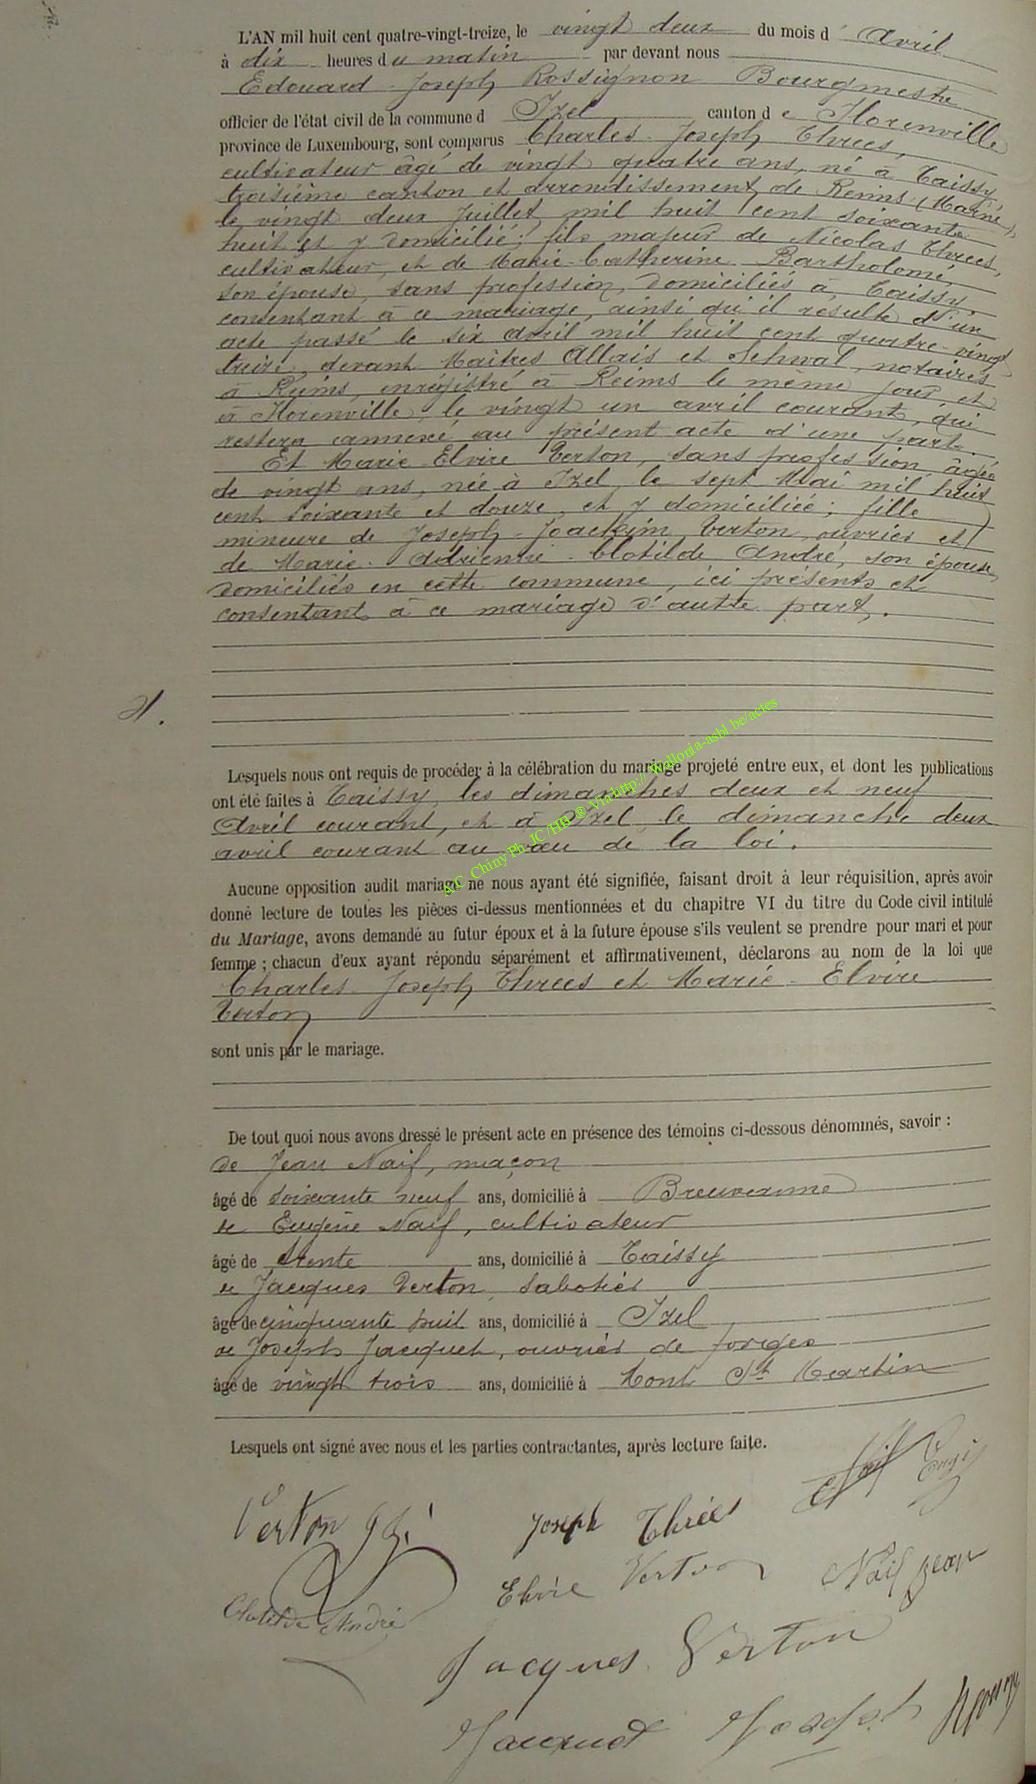 L'AN mil huit cent quatre-vingt-treize, le vingt deux du mois d' Avril
à dix heures du matin par devant nous
Edouard Joseph Rossignon Bourgmestre
officier de l'état civil de la commune d Izel canton de Florenville
province de Luxembourg, sont comparus Charles-Joseph Thrées,
cultivateur âgé de vingt quatre ans, né à Taissy
troisième canton et arrondissement de Reims (Marne),
le vingt deux Juillet mil huit cent soixante
huit et y domicilié; fils majeur de Nicolas Thrées,
cultivateur, et de Marie-Catherine Bartholomé,
son épouse, sans profession, domiciliés à Taissy,
consentant à ce mariage, ainsi qu'il résulte d'un
acte passé le six avril mil huit cent quatre-vingt
treize, devant Maîtres Allais et Schwal, notaires
à Reims, enrégistré à Reims le même jour, et
à Florenville, le vingt un avril courant, qui
restera annexé au présent acte d'une part.
Et Marie Elvire Verton, sans profession, âgée
de vingt ans, née à Izel, le sept Mai mil huit
cent soixante et douze, et y domiciliée; fille
mineure de Joseph-Joachim Verton, ouvrier et
de Marie-Adrienne-Clotilde André, son épouse,
domiciliés en cette commune, ici présents et
consentant à ce mariage d'autre part.
Lesquels nous ont requis de procéder à la célébration du mariage projeté entre eux, et dont les publications
ont été faites à Taissy, les dimanches deux et neuf
Avril courant, et à Izel le dimanche deux
avril courant au vœu de la loi.
&C Chiny Ph. JC/HB ® Via http://wallonia-asbl.be/actes
Aucune opposition audit mariage ne nous ayant été signifiée, faisant droit à leur réquisition, après avoir
donné lecture de toutes les pièces ci-dessus mentionnées et du chapitre VI du titre du Code civil intitulé
du Mariage, avons demandé au futur époux et à la future épouse s'ils veulent se prendre pour mari et pour
femme ; chacun d'eux ayant répondu séparément et affirmativement, déclarons au nom de la loi que
Charles-Joseph Thrées et Marie-Elvire
Verton
sont unis par le mariage.
De tout quoi nous avons dressé le présent acte en présence des témoins ci-dessous dénommés, savoir :
de Jean Naif, maçon
âgé de soixante neuf ans, domicilié à Breuvanne
de Eugène Naif, cultivateur
âgé de trente ans, domicilié à Taissy
de Jacques Verton, sabotier
âgé de cinquante huit ans, domicilié à Izel
de Joseph Jacquet, ouvrier de forges
âgé de vingt trois ans, domicilié à Mont St Martin
Lesquels ont signé avec nous et les parties contractantes, après lecture faite.
Naif
Verton Joseph Thrées
Elvire Verton Naif Jean
Clotilde André
Jacques Verton
Jacquet Joseph